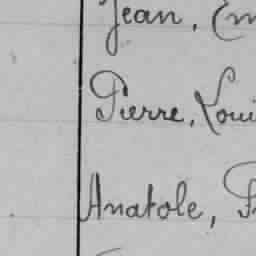 Jean, Em
Pierre, Loui
Anatole, F